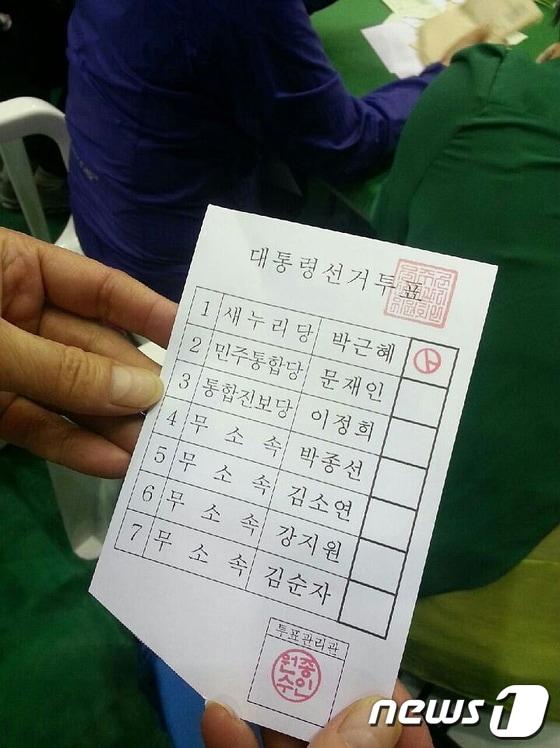 대통령선거투표
1 새누리당 박근혜
2 민주통합당 문재인
3 통합진보당 이정희
4 무소속 박종선
5 무소속 김소연
6 무소속 강지원
7 무소속 김순자
투표관리관
원종
수인
news1